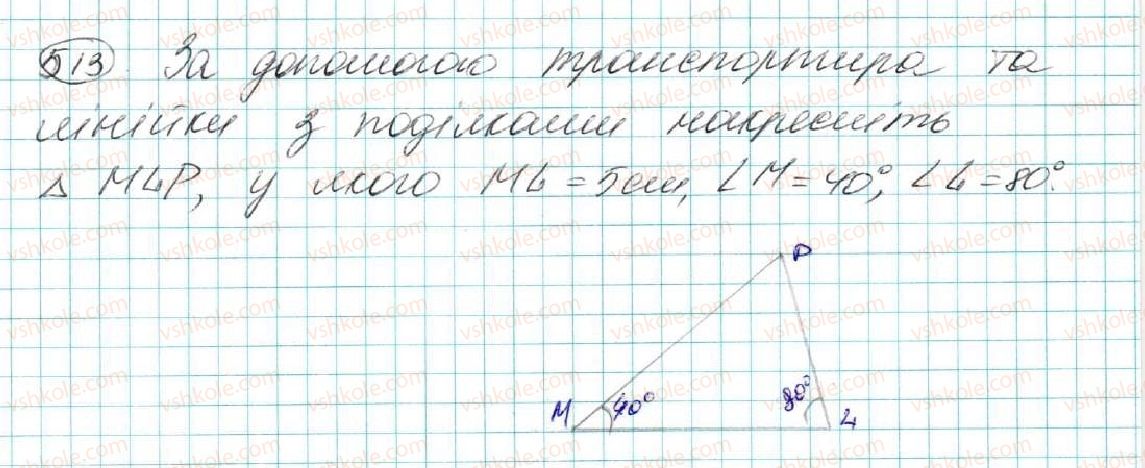 513. За допомогою транспортира та
лінійки з поділками накресліть
△ MLP, у якого ML = 5см, ∠M = 40°, ∠L = 80°.
P
M 40° 80° L
vshkole.com